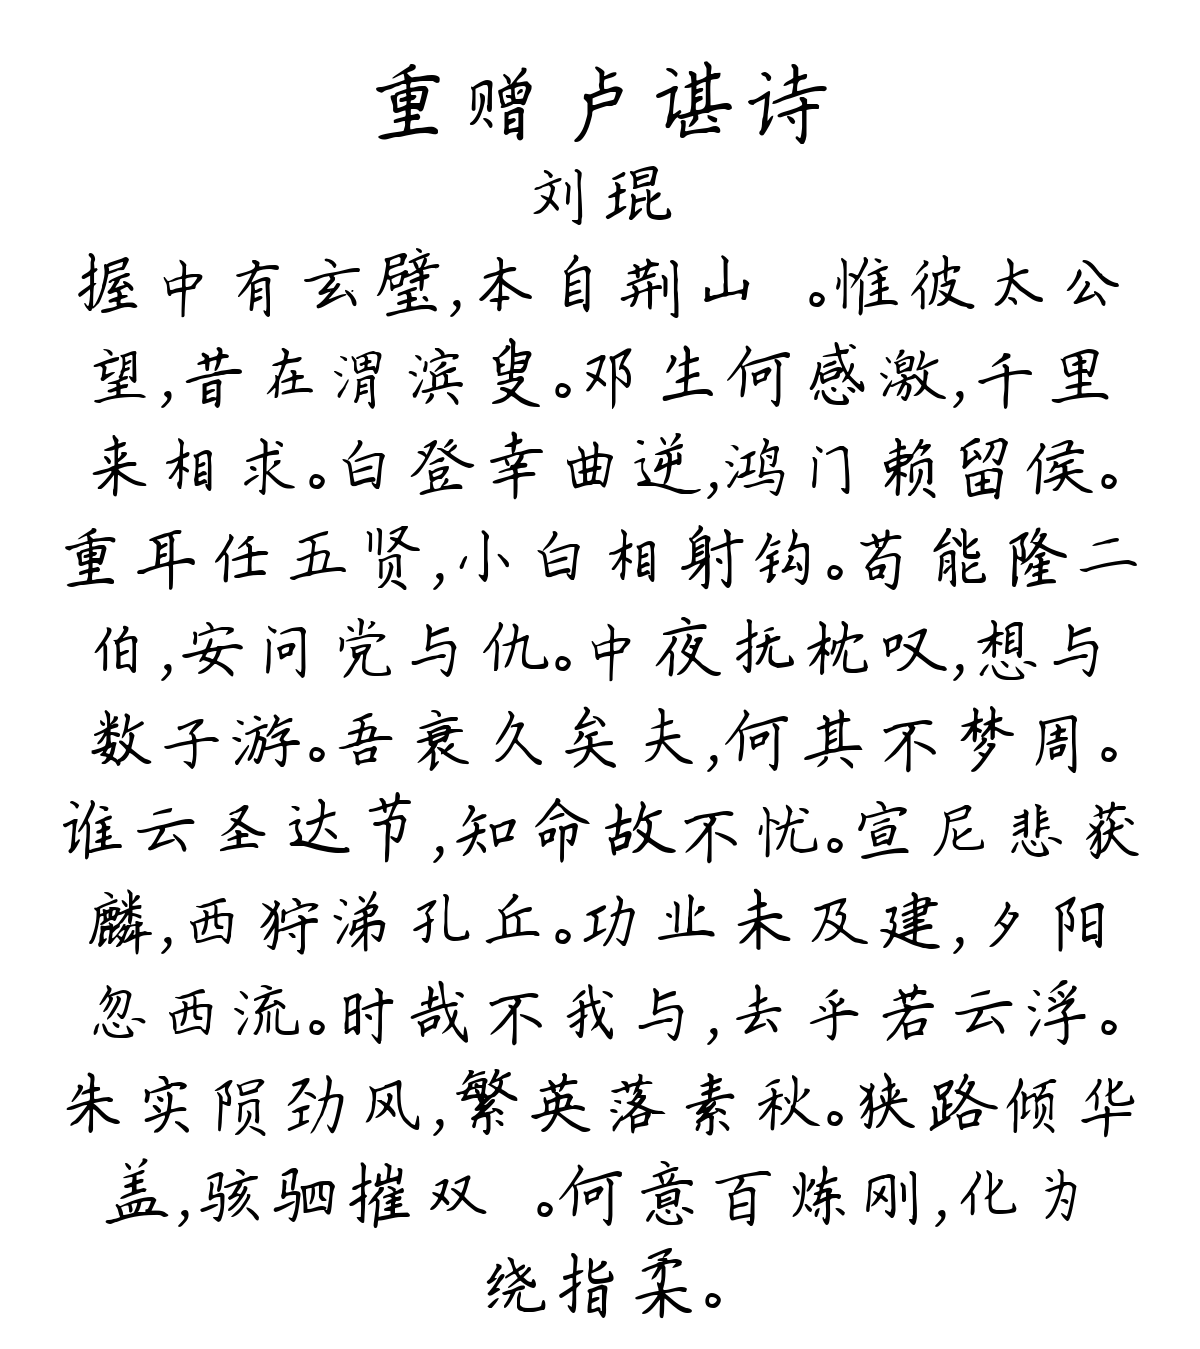 重赠卢谌诗
刘琨
握中有玄璧,本自荆山 。惟彼太公
望,昔在渭滨叟。邓生何感激,千里
来相求。白登幸曲逆,鸿门赖留侯。
重耳任五贤,小白相射钩。苟能隆二
伯,安问党与仇。中夜抚枕叹,想与
数子游。吾衰久矣夫,何其不梦周。
谁云圣达节,知命故不忧。宣尼悲获
麟,西狩涕孔丘。功业未及建,夕阳
忽西流。时哉不我与,去乎若云浮。
朱实陨劲风,繁英落素秋。狭路倾华
盖,骇驷摧双 。何意百炼刚,化为
绕指柔。